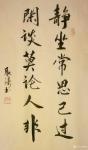 静坐常思己过
闲谈莫论人非